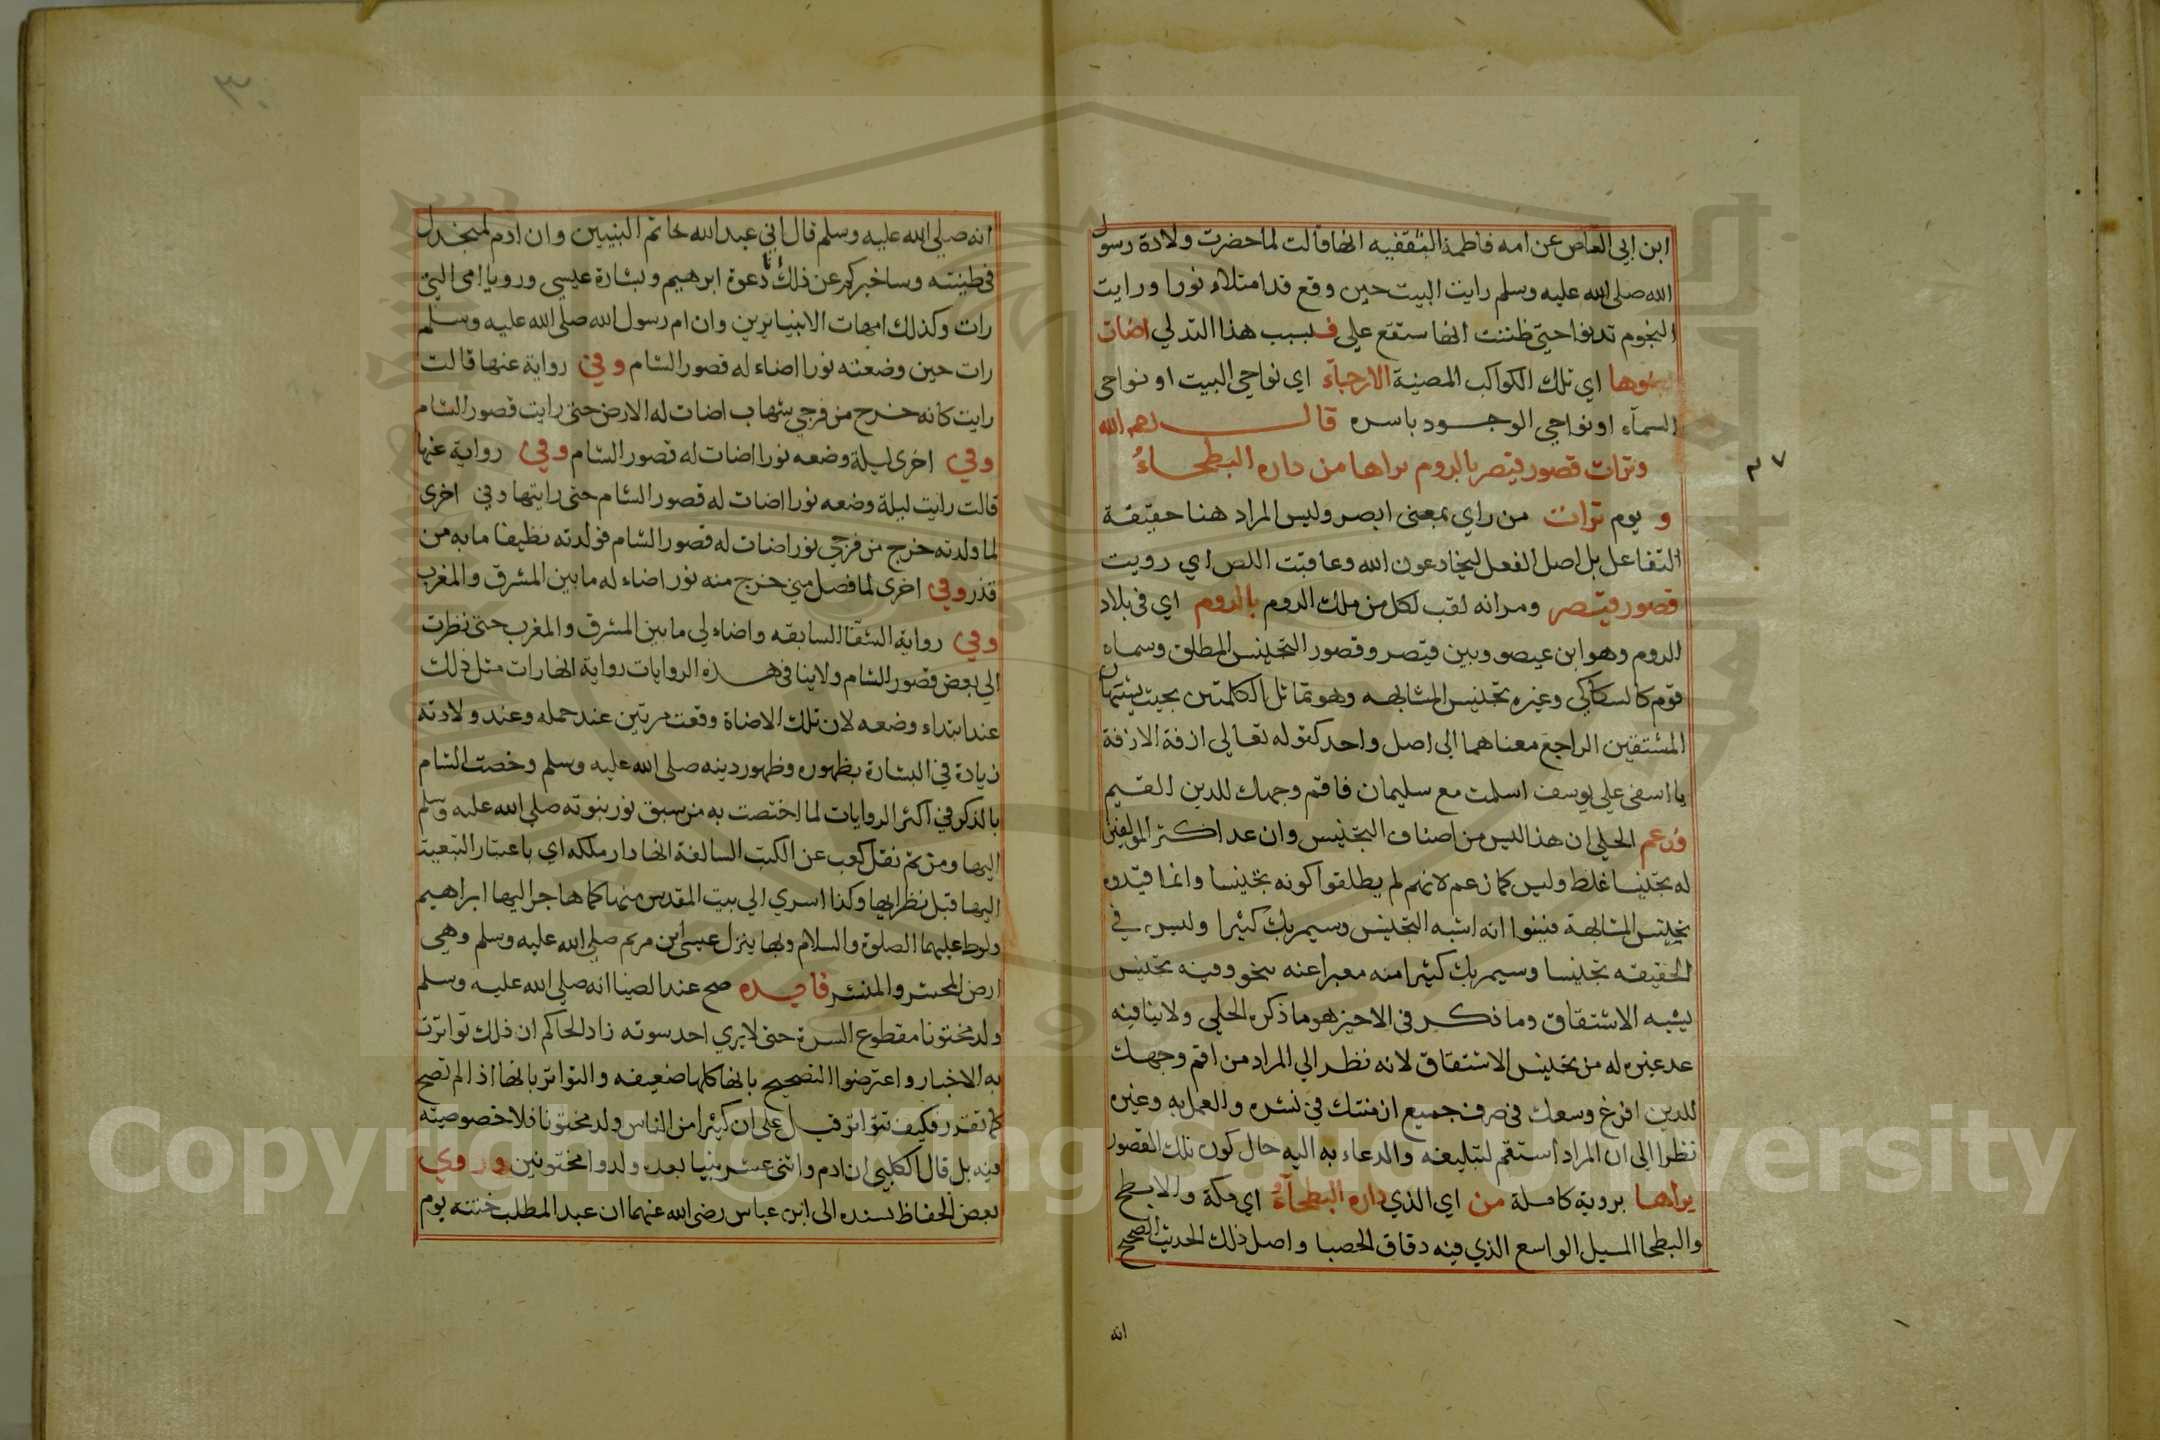 ابن ابي العاص عن امه فاطمة الثقفيه انها قالت لما حضرت ولادة رسول
الله صلى الله عليه وسلم رايت البيت حين وقع قد امتلاء نورا ورايت
النجوم تدنوا حتى ظننت انها ستقع علي فبسبب هذا التدلي اضات
اي تلك الكواكب المضيئة الارجاء اي نواحي البيت او نواحي
السماء او نواحي الوجود باسره قال رحمه الله
وترات قصور قيصر بالروم يراها من داره البطحاء
٣٧
و يوم ترات من راي بمعنى ابصر وليس المراد هنا حقيقة
التفاعل بل اصل الفعل ليخادعون الله وعاقبت اللص اي رويت
قصور قيصر ومر انه لقب لكل من ملك الروم بالروم اي في بلاد
الروم وهو ابن عيصو وبين قيصر وقصور التجنيس المطلق وسماه
قوم كالسكاكي وغيره تجنيس المشابهه وهو تماثل الكلمتين بحيث
المشتقين الراجع معناهما الى اصل واحد كقوله تعالى ازفة الازفة
يا اسفى على يوسف اسلمت مع سليمان فاقم وجهك للدين القيم
وزعم الحلي ان هذا ليس من اصناف التجنيس وان عد اكثر المولفين
له تجنيسا غلط وليس كما زعم لانهم لم يطلقوا كونه تجنيسا وانما قيدوه
بتجنيس المشابهة فبينوا انه اشبه التجنيس وسيمر بك كثيرا وليس في
الحقيقه تجنيسا وسيمر بك كثيرا منه معبرا عنه بنحو وفيه تجنيس
يشبه الاشتقاق وما ذكر في الاخير هو ما ذكره الحلي ولا ينافيه
عد غيره له من تجنيس الاشتقاق لانه نظر الي المراد من اقم وجهك
للدين افرغ وسعك في صرف جميع ازمنتك في نشره والعمل به وغيره
نظرا الى ان المراد استقم لتبليغه والدعاء به اليه حال كون تلك القصور
يراها بروية كاملة من اي الذي داره البطحاء اي مكة والابطح
والبطحا المسيل الواسع الذي فيه دقاق الحصبا واصل ذلك الحديث الصحيح
انه
٣٠
انه صلى الله عليه وسلم قال اني عبد الله خاتم النبيين وان ادم لمنجدل
في طينته وساخبركم عن ذلك انا دعوة ابرهيم وبشارة عيسى ورويا امي التي
رات وكذلك امهات الانبيا يرين وان ام رسول الله صلى الله عليه وسلم
رات حين وضعته نورا اضاء له قصور الشام وفي رواية عنها قالت
رايت كانه خرج من فرجي شهاب اضات له الارض حتى رايت قصور الشام
وفي اخرى ليلة وضعه نورا اضات له قصور الشام وفي رواية عنها
قالت رايت ليلة وضعه نورا اضات له قصور الشام حتى رايتها وفي اخرى
لما ولدته خرج من فرجي نور اضات له قصور الشام فولدته نظيفا ما به من
قذر وفي اخرى لما فصل مني خرج منه نور اضاء له ما بين المشرق والمغرب
وفي رواية الشفا السابقه واضاء لي ما بين المشرق والمغرب حتى نظرت
الى بعض قصور الشام ولاينافي هذه الروايات رواية انها رات مثل ذلك
عند ابتداء وضعه لان تلك الاضاة وقعت مرتين عند حمله وعند ولادته
زيادة في البشارة بظهوره وظهور دينه صلى الله عليه وسلم وخصت الشام
بالذكر في اكثر الروايات لما اختصت به من سبق نور نبوته صلى الله عليه وسلم
اليها ومن ثم نقل كعب عن الكتب السالفة انها دار ملكه اي باعتبار التبعية
اليها قبل نظرايها وكذا اسري الى بيت المقدس منها كما هاجر اليها ابراهيم
ولوط عليهما الصلوة والسلام وبها ينزل عيسى ابن مريم صلى الله عليه وسلم وهي
ارض المحشر والمنشر فايده صح عند الضيا انه صلى الله عليه وسلم
ولد مختونا مقطوع السرة حتى لا يري احد سوته زاد الحاكم ان ذلك تواترت
به الاخبار واعترضوا التصحيح بانها كلها ضعيفه والتواتر بانها اذا لم تصح
كما تقرر فكيف تتواتر قيل على ان كثيرا من الناس ولد مختونا فلا خصوصية
فيه بل قال الكلبي ان ادم واثني عشر نبيا بعده ولدوا مختونين وروي
بعض الحفاظ بسنده الى ابن عباس رضى الله عنهما ان عبد المطلب ختنه يوم
Copyright © King Saud University